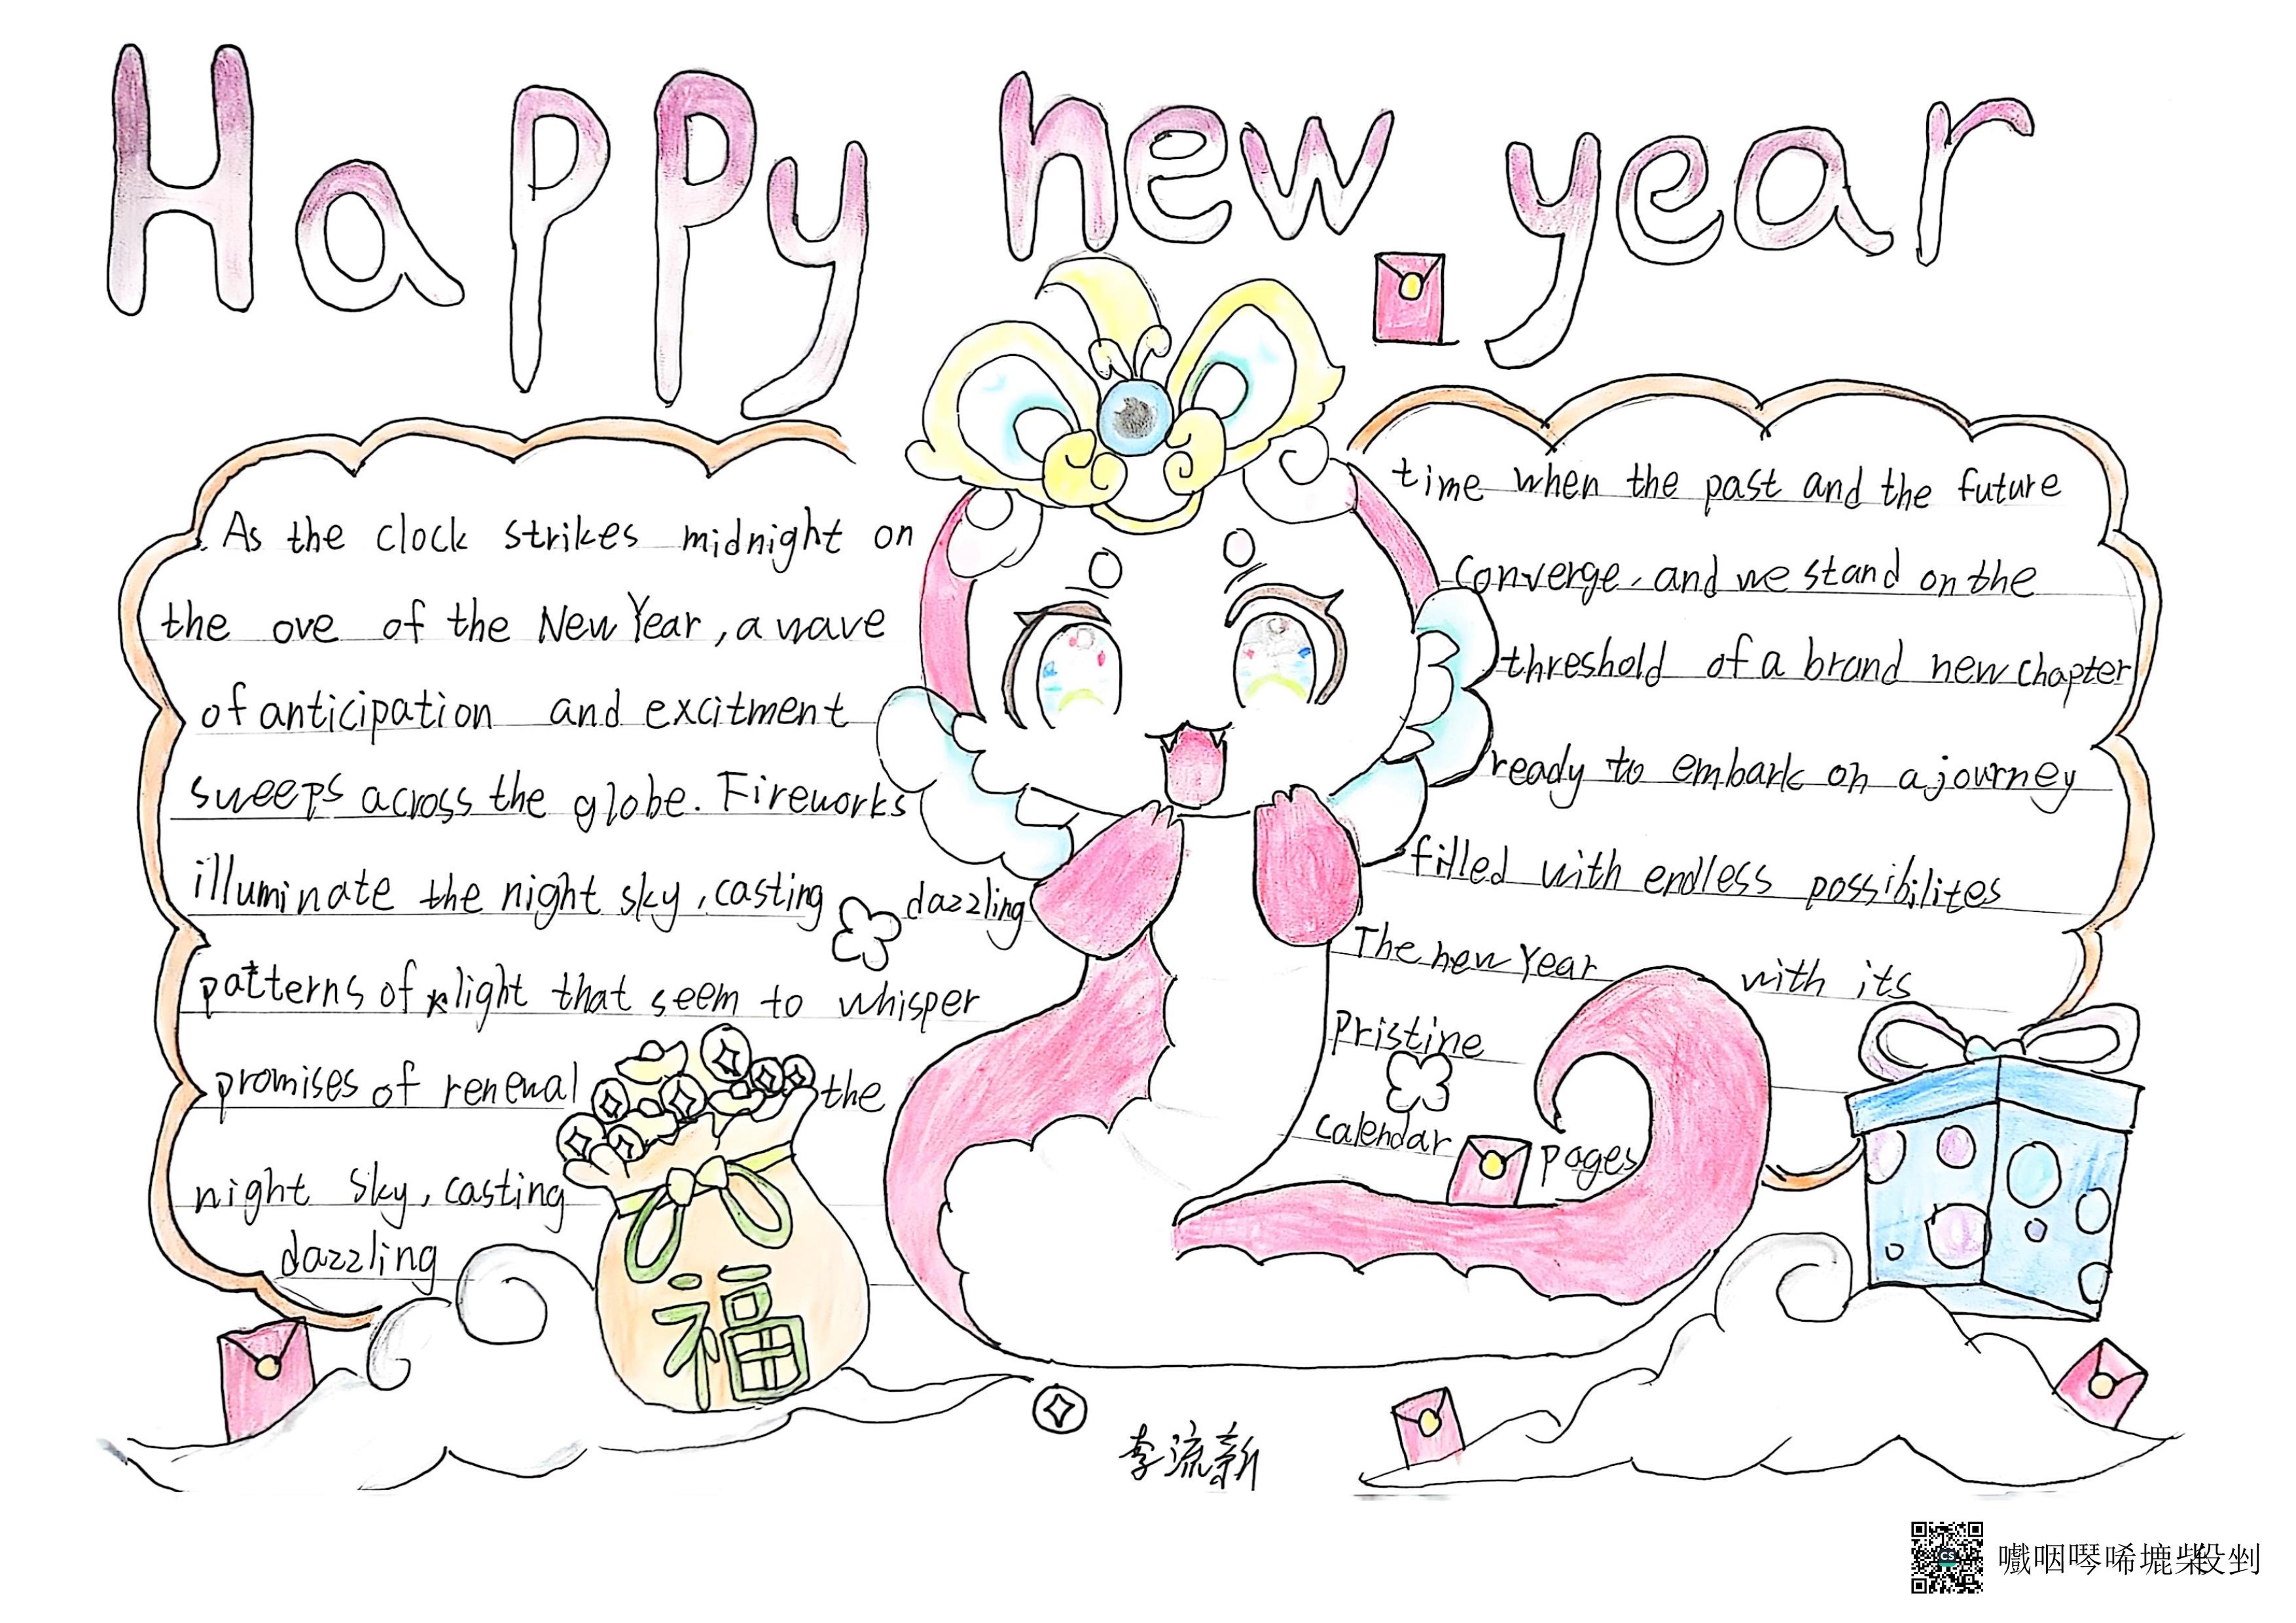 Happy new year
As the clock strikes midnight on
the ove of the New Year, a wave
of anticipation and excitment
sweeps across the globe. Fireworks
illuminate the night sky, casting dazzling
patterns of light that seem to whisper
promises of renewal the
night sky, casting
dazzling
福
time when the past and the future
converge, and we stand on the
threshold of a brand new chapter
ready to embark on a journey
filled with endless possibilites
The new Year with its
pristine
calendar pages
李流新
CS
嚱咽噿唏塘柴投剉